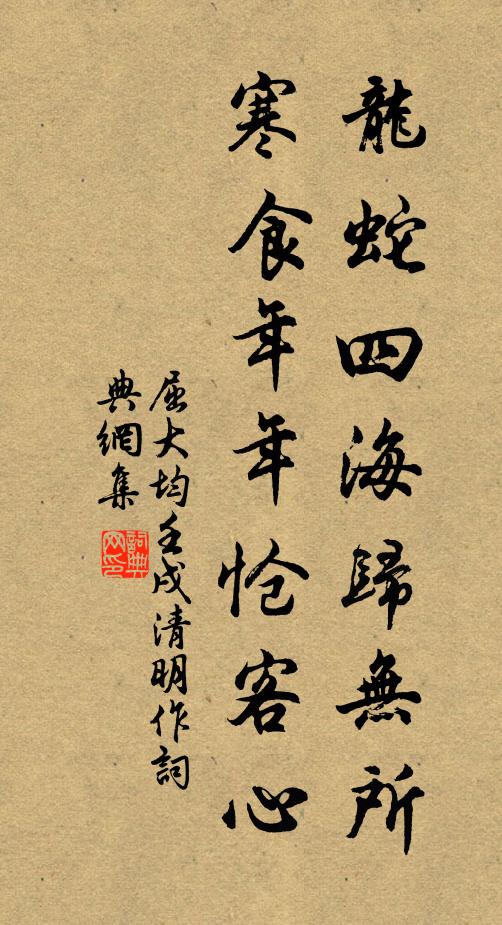 龍蛇四海歸無所
寒食年年愴客心
屈大均壬戌清明作詞
典網集
詞典
网印